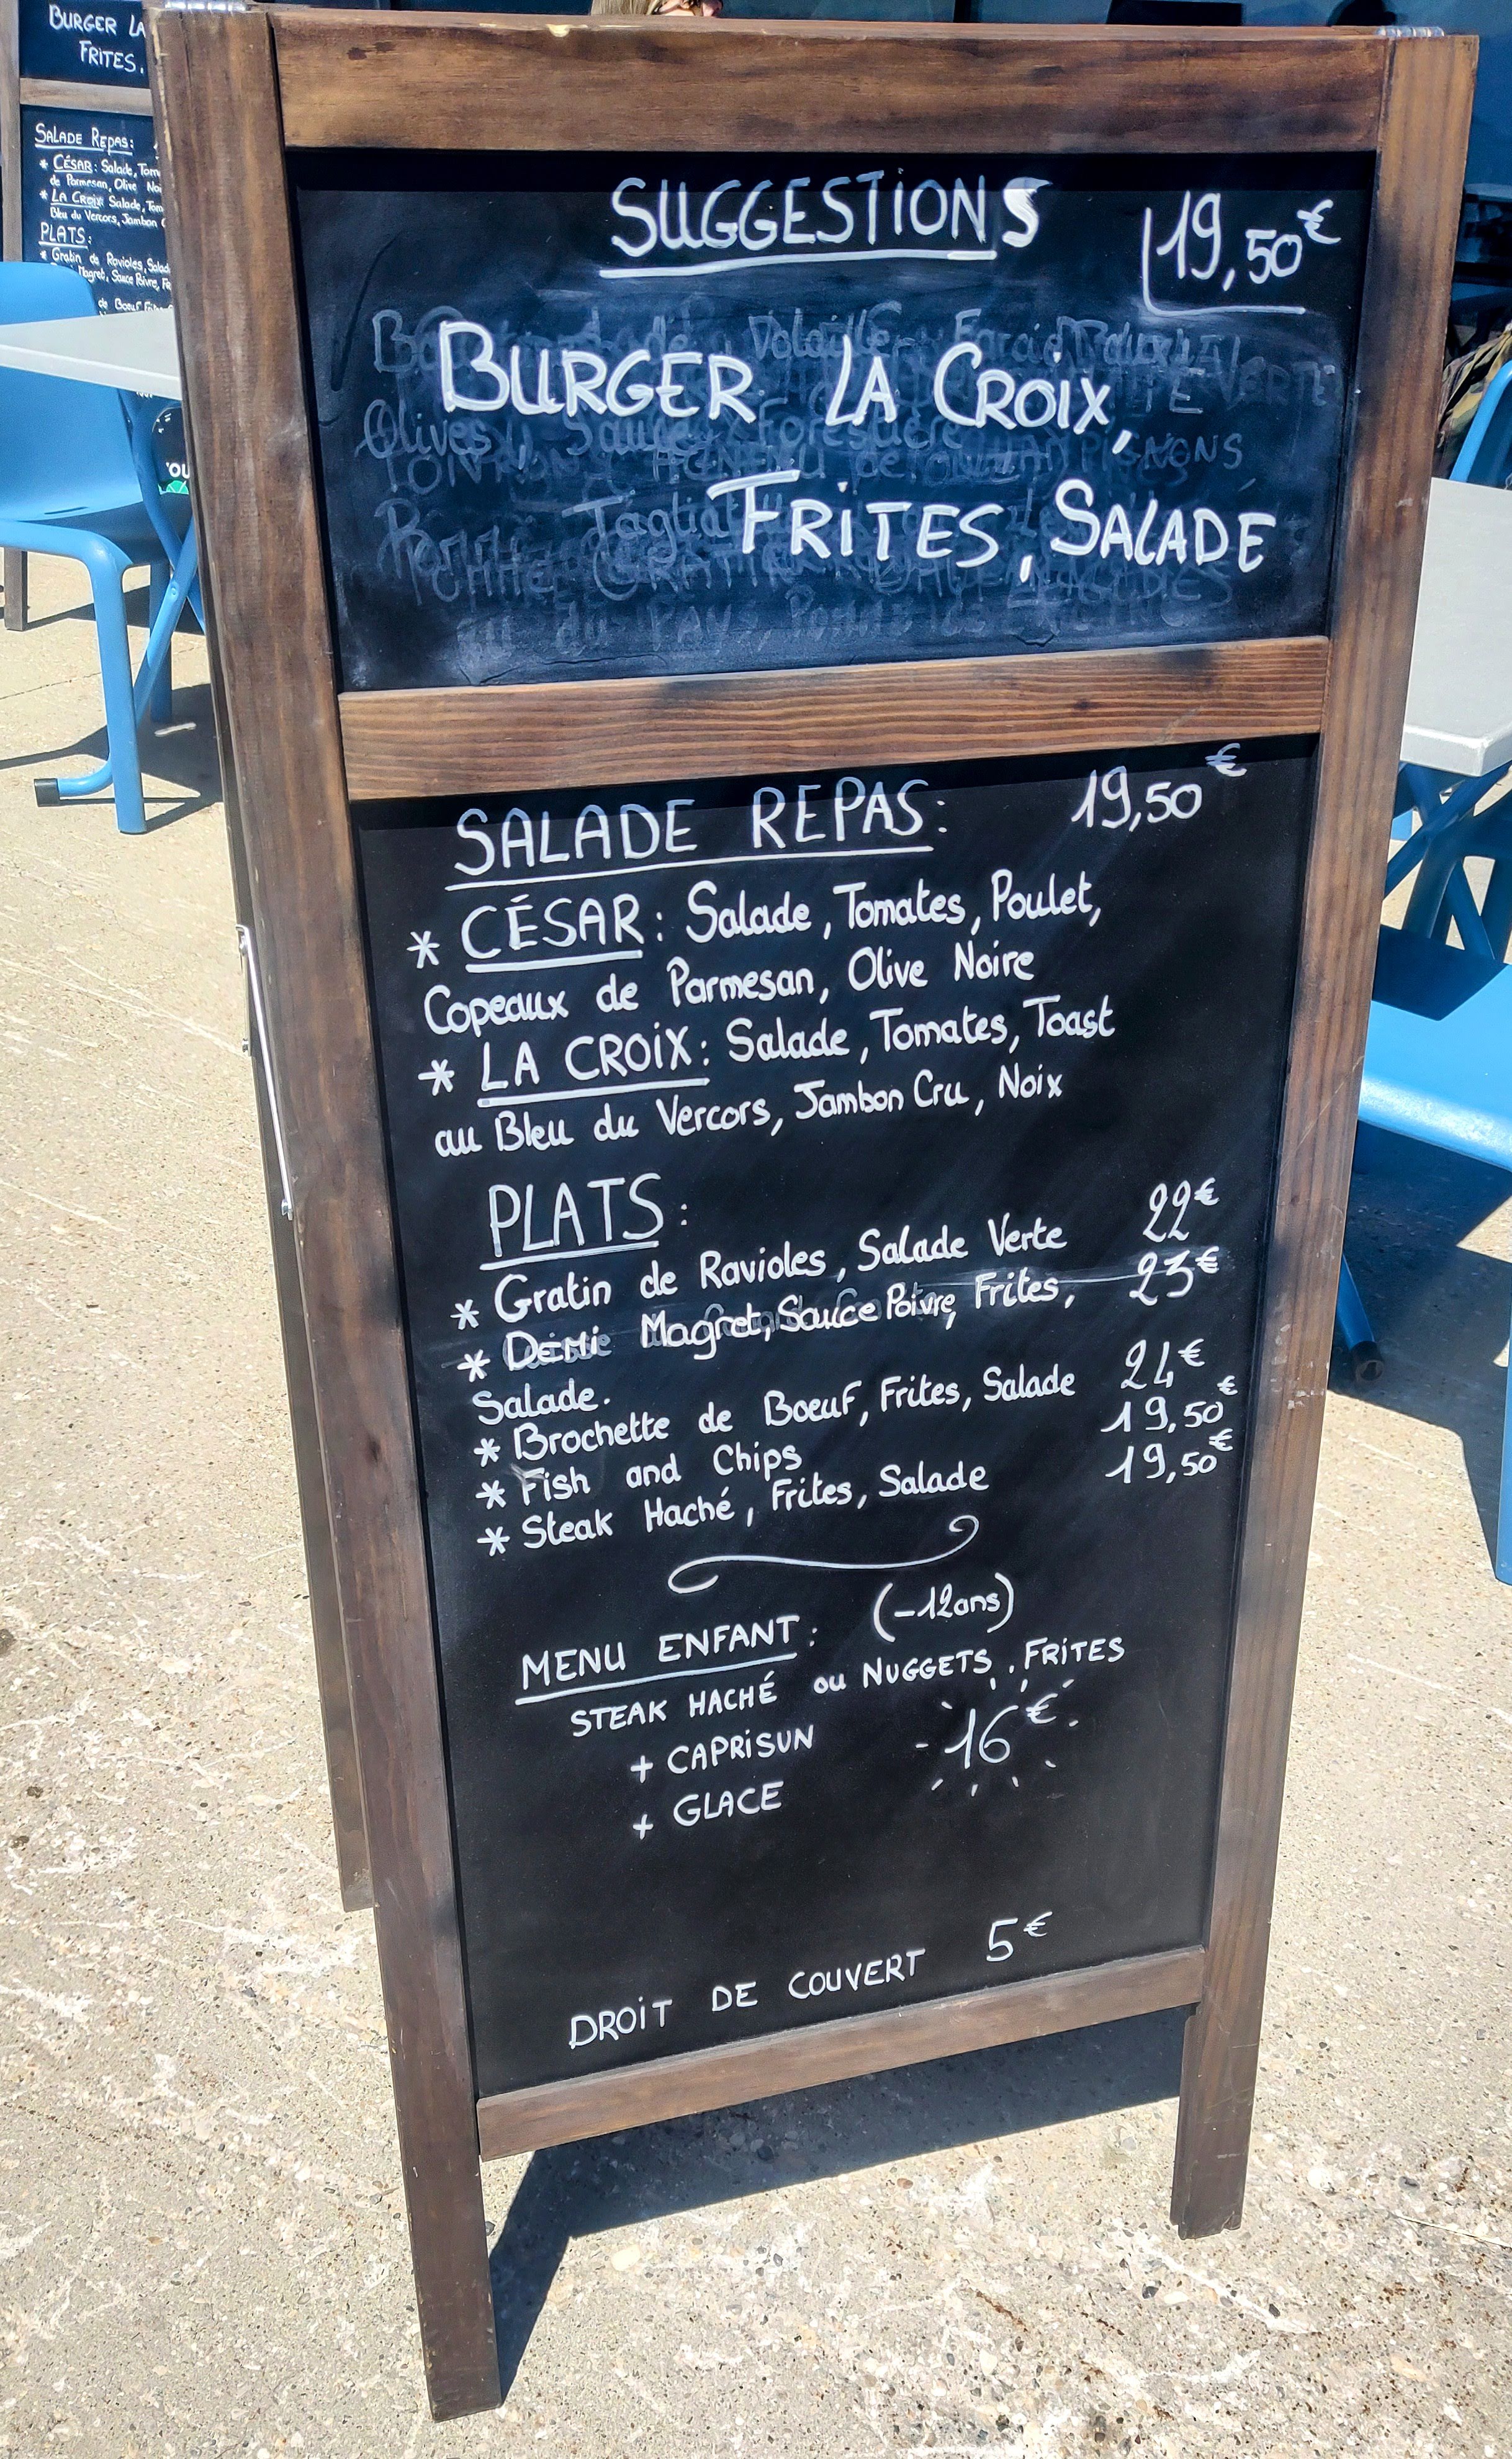 BURGER LA
FRITES,
SALADE REPAS:
* CÉSAR: Salade, Tom
de Parmesan, Olive Noi
* LA CROIX: Salade, Tom
Bleu du Vercors, Jambon C
PLATS:
* Gratin de Ravioles, Salad
Magret, Sauce Poivre, F
de Boeuf, Frit
SUGGESTIONS
19,50€
BURGER LA CROIX,
FRITES, SALADE
SALADE REPAS: 19,50€
* CÉSAR: Salade, Tomates, Poulet,
Copeaux de Parmesan, Olive Noire
* LA CROIX: Salade, Tomates, Toast
au Bleu du Vercors, Jambon Cru, Noix
PLATS:
* Gratin de Ravioles, Salade Verte 22€
* Demi Magret, Sauce Poivre, Frites, 23€
Salade.
* Brochette de Boeuf, Frites, Salade 24€
* Fish and Chips 19,50€
* Steak Haché, Frites, Salade 19,50€
MENU ENFANT: (-12ans)
STEAK HACHÉ ou NUGGETS, FRITES
+ CAPRISUN 16€
+ GLACE
DROIT DE COUVERT 5€